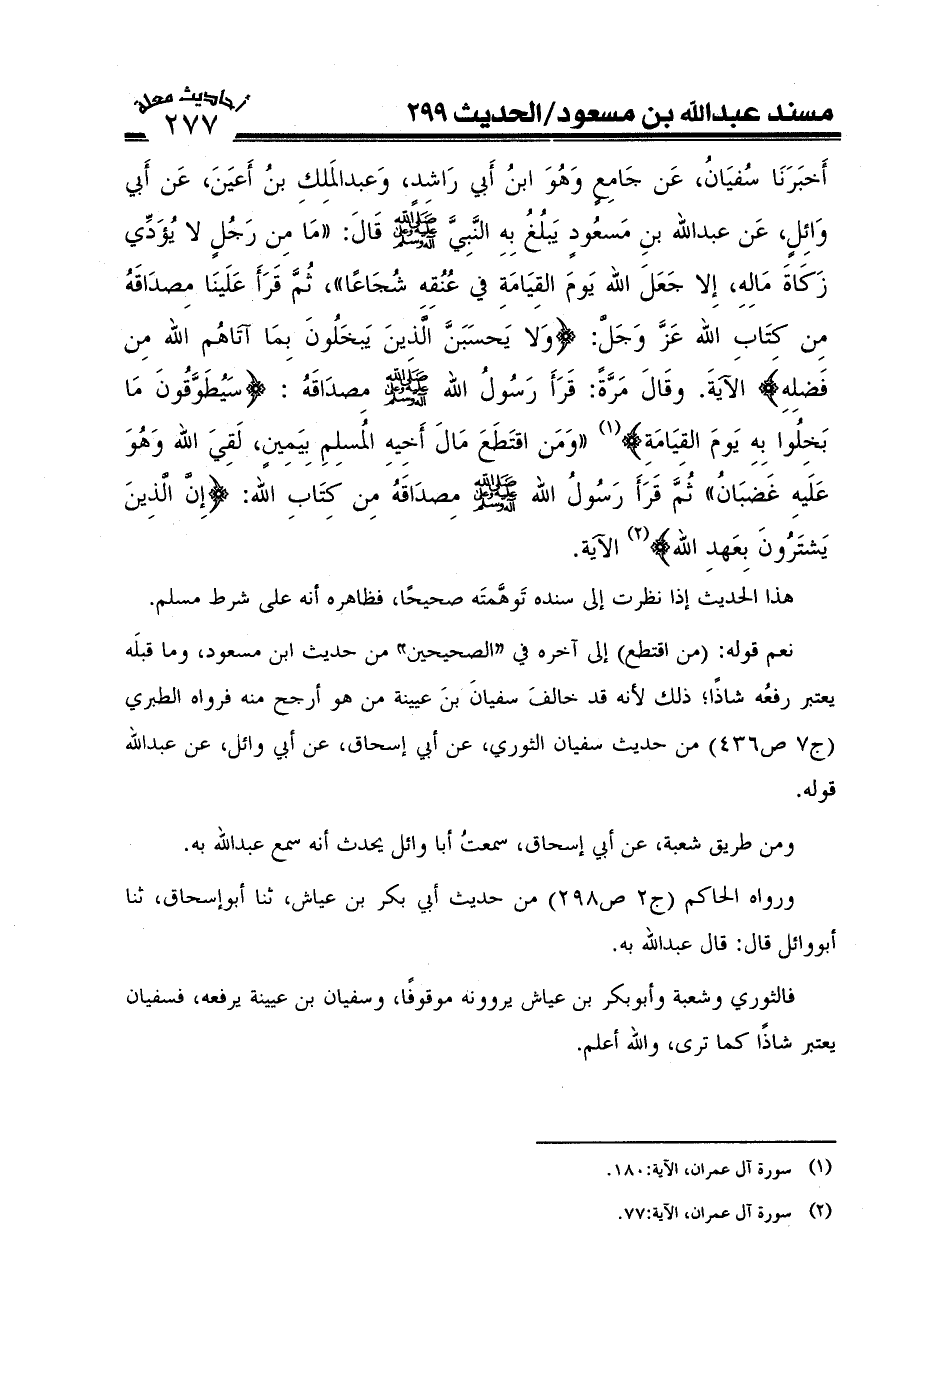 مسند عبدالله بن مسعود/الحديث ٢٩٩
أحاديث معلة
٢٧٧
أَخبَرَنَا سُفيَانُ، عَن جَامِعٍ وَهُوَ ابنُ أَبي رَاشِدٍ، وَعبدالمَلِكِ بنُ أَعيَنَ، عَن أَبي
وَائِلٍ، عَن عبدالله بنِ مَسعُودٍ يَبلُغُ بِهِ النَّبِيَّ ﷺ قَالَ: «مَا مِن رَجُلٍ لا يُؤَدِّي
زَكَاةَ مَالِهِ، إِلا جَعَلَ الله يَومَ القِيَامَةِ في عُنُقِهِ شُجَاعًا»، ثُمَّ قَرَأَ عَلَينَا مِصدَاقَهُ
مِن كِتَابِ الله عَزَّ وَجَلَّ: ﴿وَلا يَحسَبَنَّ الَّذِينَ يَبخَلُونَ بِمَا آتَاهُم الله مِن
فَضلِهِ﴾ الآيَةَ. وقَالَ مَرَّةً: قَرَأَ رَسُولُ الله ﷺ مِصدَاقَهُ : ﴿سَيُطَوَّقُونَ مَا
بَخِلُوا بِهِ يَومَ القِيَامَةِ﴾(١) «وَمَن اقتَطَعَ مَالَ أَخِيهِ المُسلِمِ بِيَمِينٍ، لَقِيَ الله وَهُوَ
عَلَيهِ غَضبَانُ» ثُمَّ قَرَأَ رَسُولُ الله ﷺ مِصدَاقَهُ مِن كِتَابِ الله: ﴿إِنَّ الَّذِينَ
يَشتَرُونَ بِعَهدِ الله﴾(٢) الآيَةَ.
هذا الحديث إذا نظرت إلى سنده تَوهَّمتَه صحيحًا، فظاهره أنه على شرط مسلم.
نعم قوله: (من اقتطع) إلى آخره في «الصحيحين» من حديث ابن مسعود، وما قبلَه
يعتبر رفعُه شاذًا؛ ذلك لأنه قد خالفَ سفيانَ بنَ عيينة من هو أرجح منه فرواه الطبري
(ج٧ ص٤٣٦) من حديث سفيان الثوري، عن أبي إسحاق، عن أبي وائل، عن عبدالله
قوله.
ومن طريق شعبة، عن أبي إسحاق، سمعتُ أبا وائل يحدث أنه سمع عبدالله به.
ورواه الحاكم (ج٢ ص٢٩٨) من حديث أبي بكر بن عياش، ثنا أبوإسحاق، ثنا
أبووائل قال: قال عبدالله به.
فالثوري وشعبة وأبوبكر بن عياش يروونه موقوفًا، وسفيان بن عيينة يرفعه، فسفيان
يعتبر شاذًا كما ترى، والله أعلم.
(١) سورة آل عمران، الآية:١٨٠.
(٢) سورة آل عمران، الآية:٧٧.